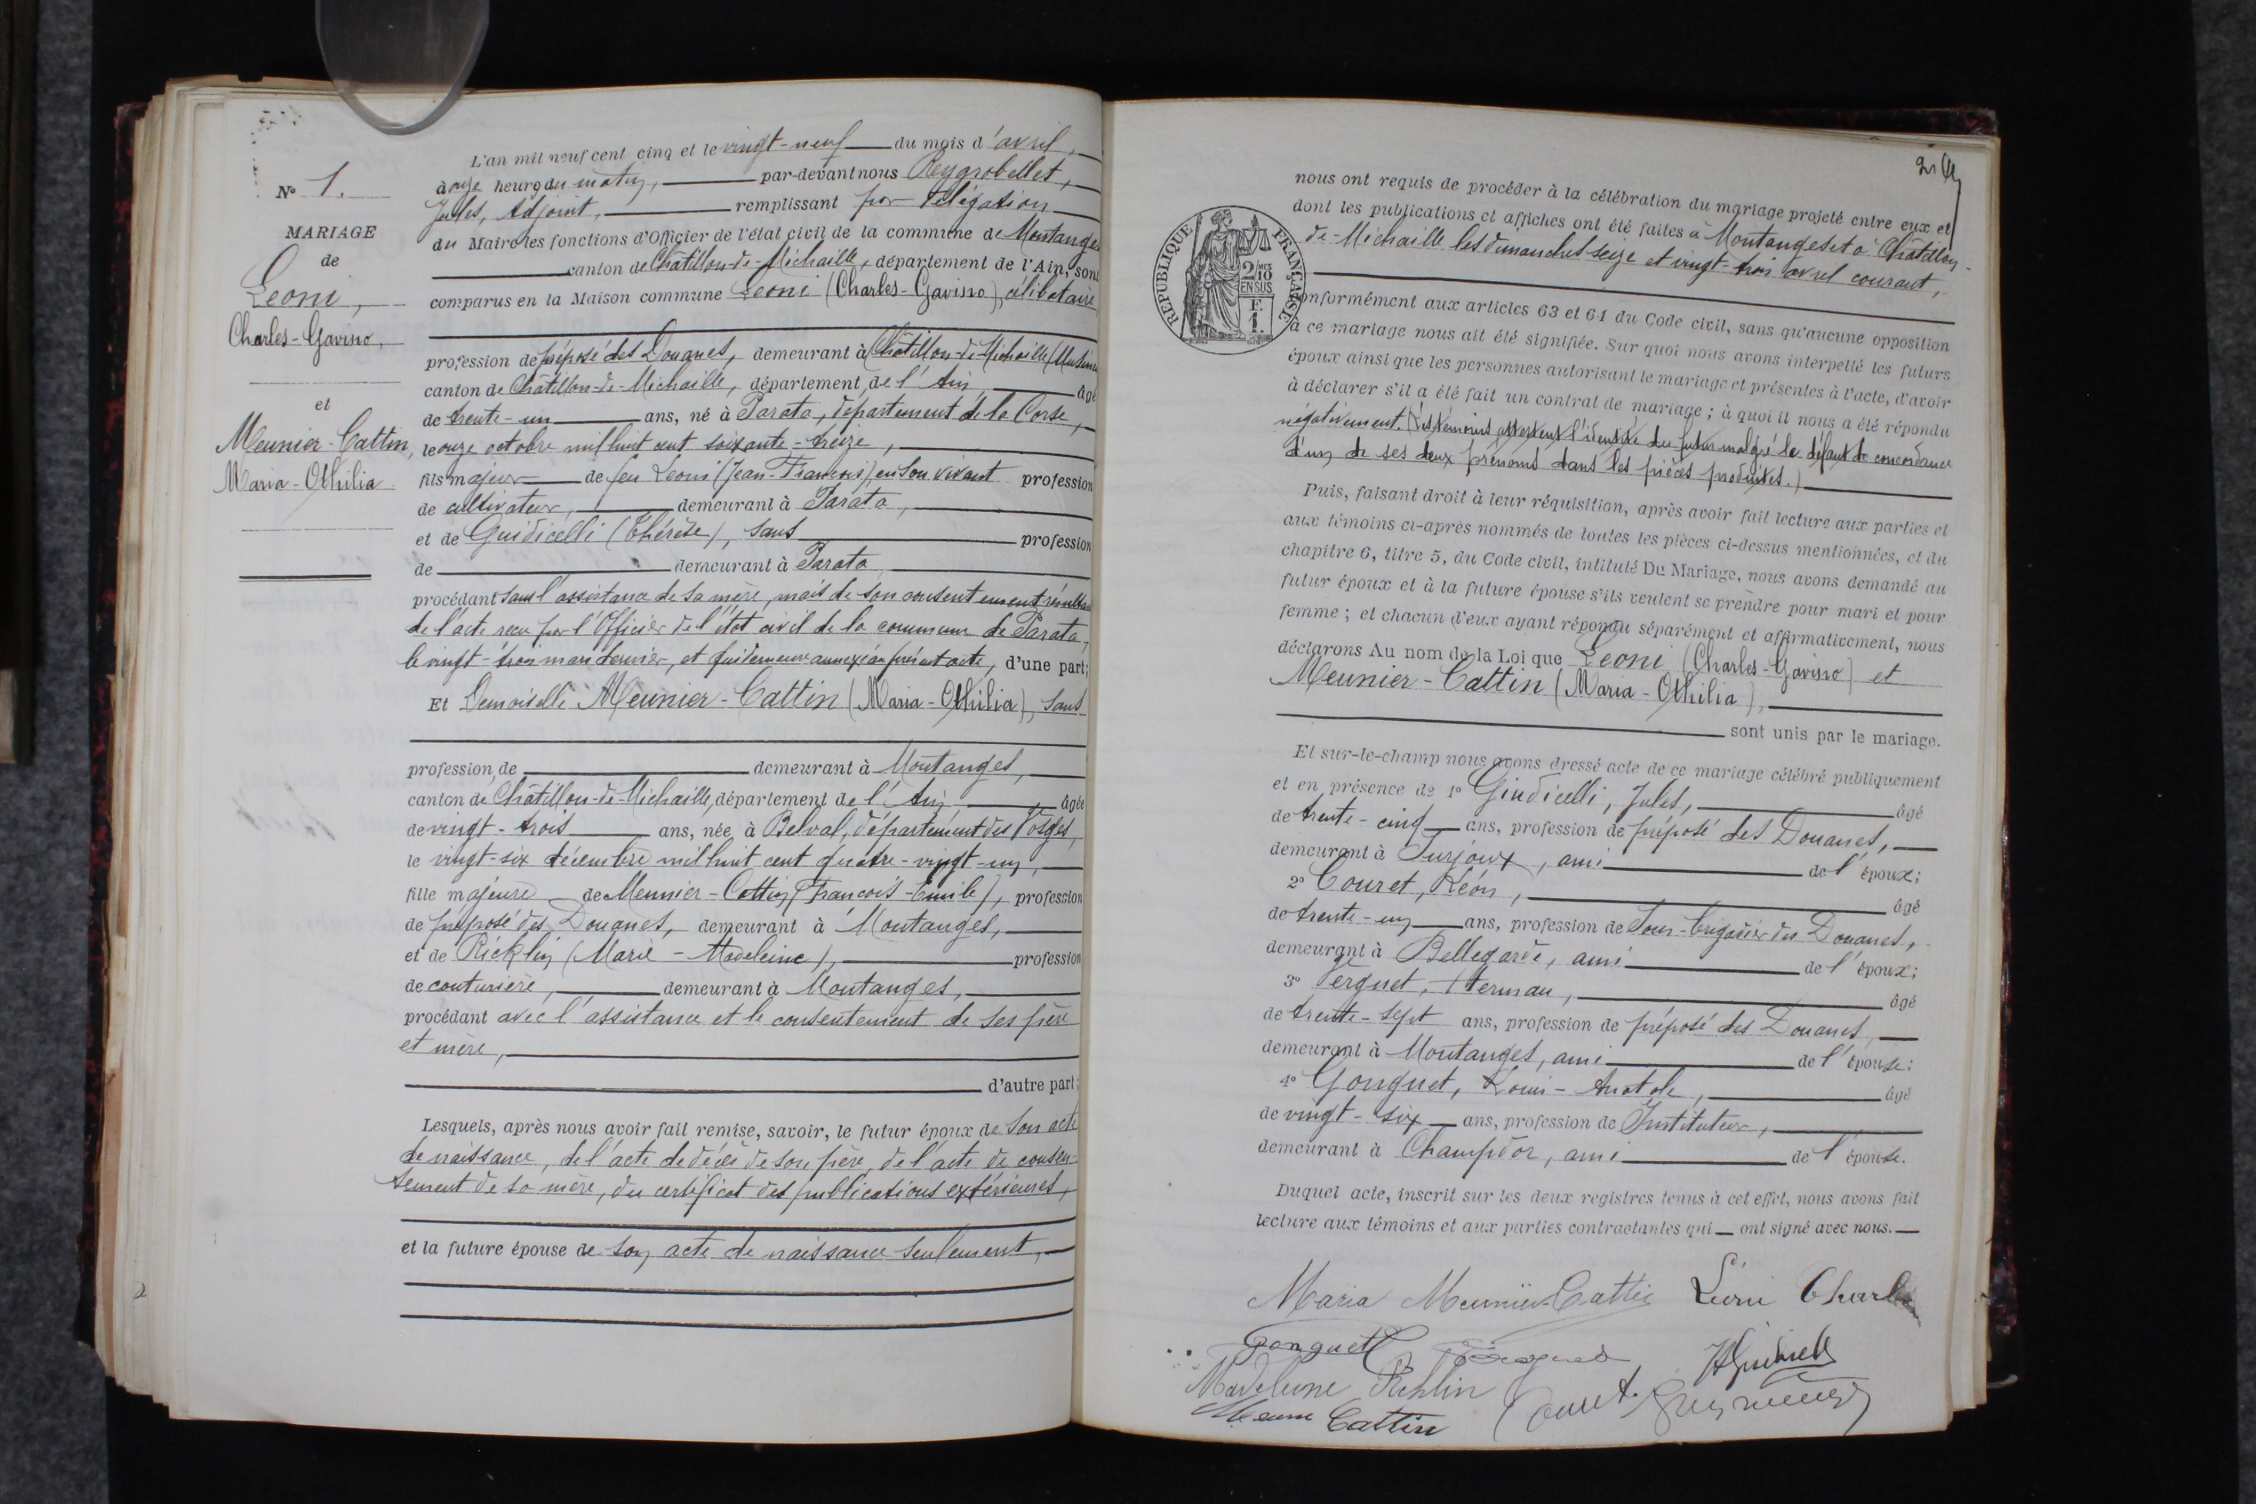 N° 1.
MARIAGE
de
Leoni,
Charles-Gavino,
et
Meunier-Cattin,
Maria-Othilia
L'an mil neuf cent cinq et le vingt-neuf du mois d'avril,
à onze heures du matin, par-devant nous Reygrobellet,
Jules, Adjoint, remplissant par délégation
du Maire les fonctions d'Officier de l'état civil de la commune de Montanges
canton de Châtillon-de-Michaille, département de l'Ain, sont
comparus en la Maison commune Leoni (Charles-Gavino), célibataire
profession de préposé des Douanes, demeurant à Châtillon-de-Michaille (Musinens
canton de Châtillon-de-Michaille, département de l'Ain âgé
de trente-un ans, né à Parata, département de la Corse,
le onze octobre mil huit cent soixante-treize,
fils majeur de feu Leoni (Jean-François) en son vivant profession
de cultivateur, demeurant à Parata,
et de Guidicelli (Thérèse), sans profession
de demeurant à Parata
procédant sans l'assistance de sa mère, mais de son consentement résultant
de l'acte reçu par l'Officier de l'état civil de la commune de Parata,
le vingt-trois mars dernier, et qui demeure annexé au présent acte, d'une part;
Et Demoiselle Meunier-Cattin (Maria-Othilia), sans
profession de demeurant à Montanges,
canton de Châtillon-de-Michaille, département de l'Ain âgée
de vingt-trois ans, née à Belval, département des Vosges,
le vingt-six décembre mil huit cent quatre-vingt-un,
fille majeure de Meunier-Cattin (François-Emile), profession
de préposé des Douanes, demeurant à Montanges,
et de Ricklin (Marie-Madeleine), profession
de couturière, demeurant à Montanges,
procédant avec l'assistance et le consentement de ses père
et mère,
d'autre part;
Lesquels, après nous avoir fait remise, savoir, le futur époux de son acte
de naissance, de l'acte de décès de son père, de l'acte de consen-
tement de sa mère, du certificat des publications extérieures,
et la future épouse de son acte de naissance seulement,
2
nous ont requis de procéder à la célébration du mariage projeté entre eux et
dont les publications et affiches ont été faites à Montanges et à Châtillon-
de-Michaille les dimanches seize et vingt-trois avril courant,
RÉPUBLIQUE FRANÇAISE
2/10 MES
EN SUS
F.
1.
conformément aux articles 63 et 64 du Code civil, sans qu'aucune opposition
à ce mariage nous ait été signifiée. Sur quoi nous avons interpellé les futurs
époux ainsi que les personnes autorisant le mariage et présentes à l'acte, d'avoir
à déclarer s'il a été fait un contrat de mariage; à quoi il nous a été répondu
négativement. (Les témoins attestent l'identité du futur malgré le défaut de concordance
d'un de ses deux prénoms dans les pièces produites.)
Puis, faisant droit à leur réquisition, après avoir fait lecture aux parties et
aux témoins ci-après nommés de toutes les pièces ci-dessus mentionnées, et du
chapitre 6, titre 5, du Code civil, intitulé Du Mariage, nous avons demandé au
futur époux et à la future épouse s'ils veulent se prendre pour mari et pour
femme; et chacun d'eux ayant répondu séparément et affirmativement, nous
déclarons Au nom de la Loi que Leoni (Charles-Gavino) et
Meunier-Cattin (Maria-Othilia),
sont unis par le mariage.
Et sur-le-champ nous avons dressé acte de ce mariage célébré publiquement
et en présence de 1° Giudicelli, Jules, âgé
de trente-cinq ans, profession de préposé des Douanes,
demeurant à Surjoux, ami de l'époux;
2° Couret, Léon, âgé
de trente-un ans, profession de Sous-brigadier des Douanes,
demeurant à Bellegarde, ami de l'époux;
3° Verguet, Herman, âgé
de trente-sept ans, profession de préposé des Douanes,
demeurant à Montanges, ami de l'épouse;
4° Gonguet, Louis-Anatole, âgé
de vingt-six ans, profession de Instituteur,
demeurant à Champdor, ami de l'épouse.
Duquel acte, inscrit sur les deux registres tenus à cet effet, nous avons fait
lecture aux témoins et aux parties contractantes qui ont signé avec nous.
Maria Meunier-Cattin Léoni Charles
Gonguet
Madeleine Ricklin Couret
Cattin